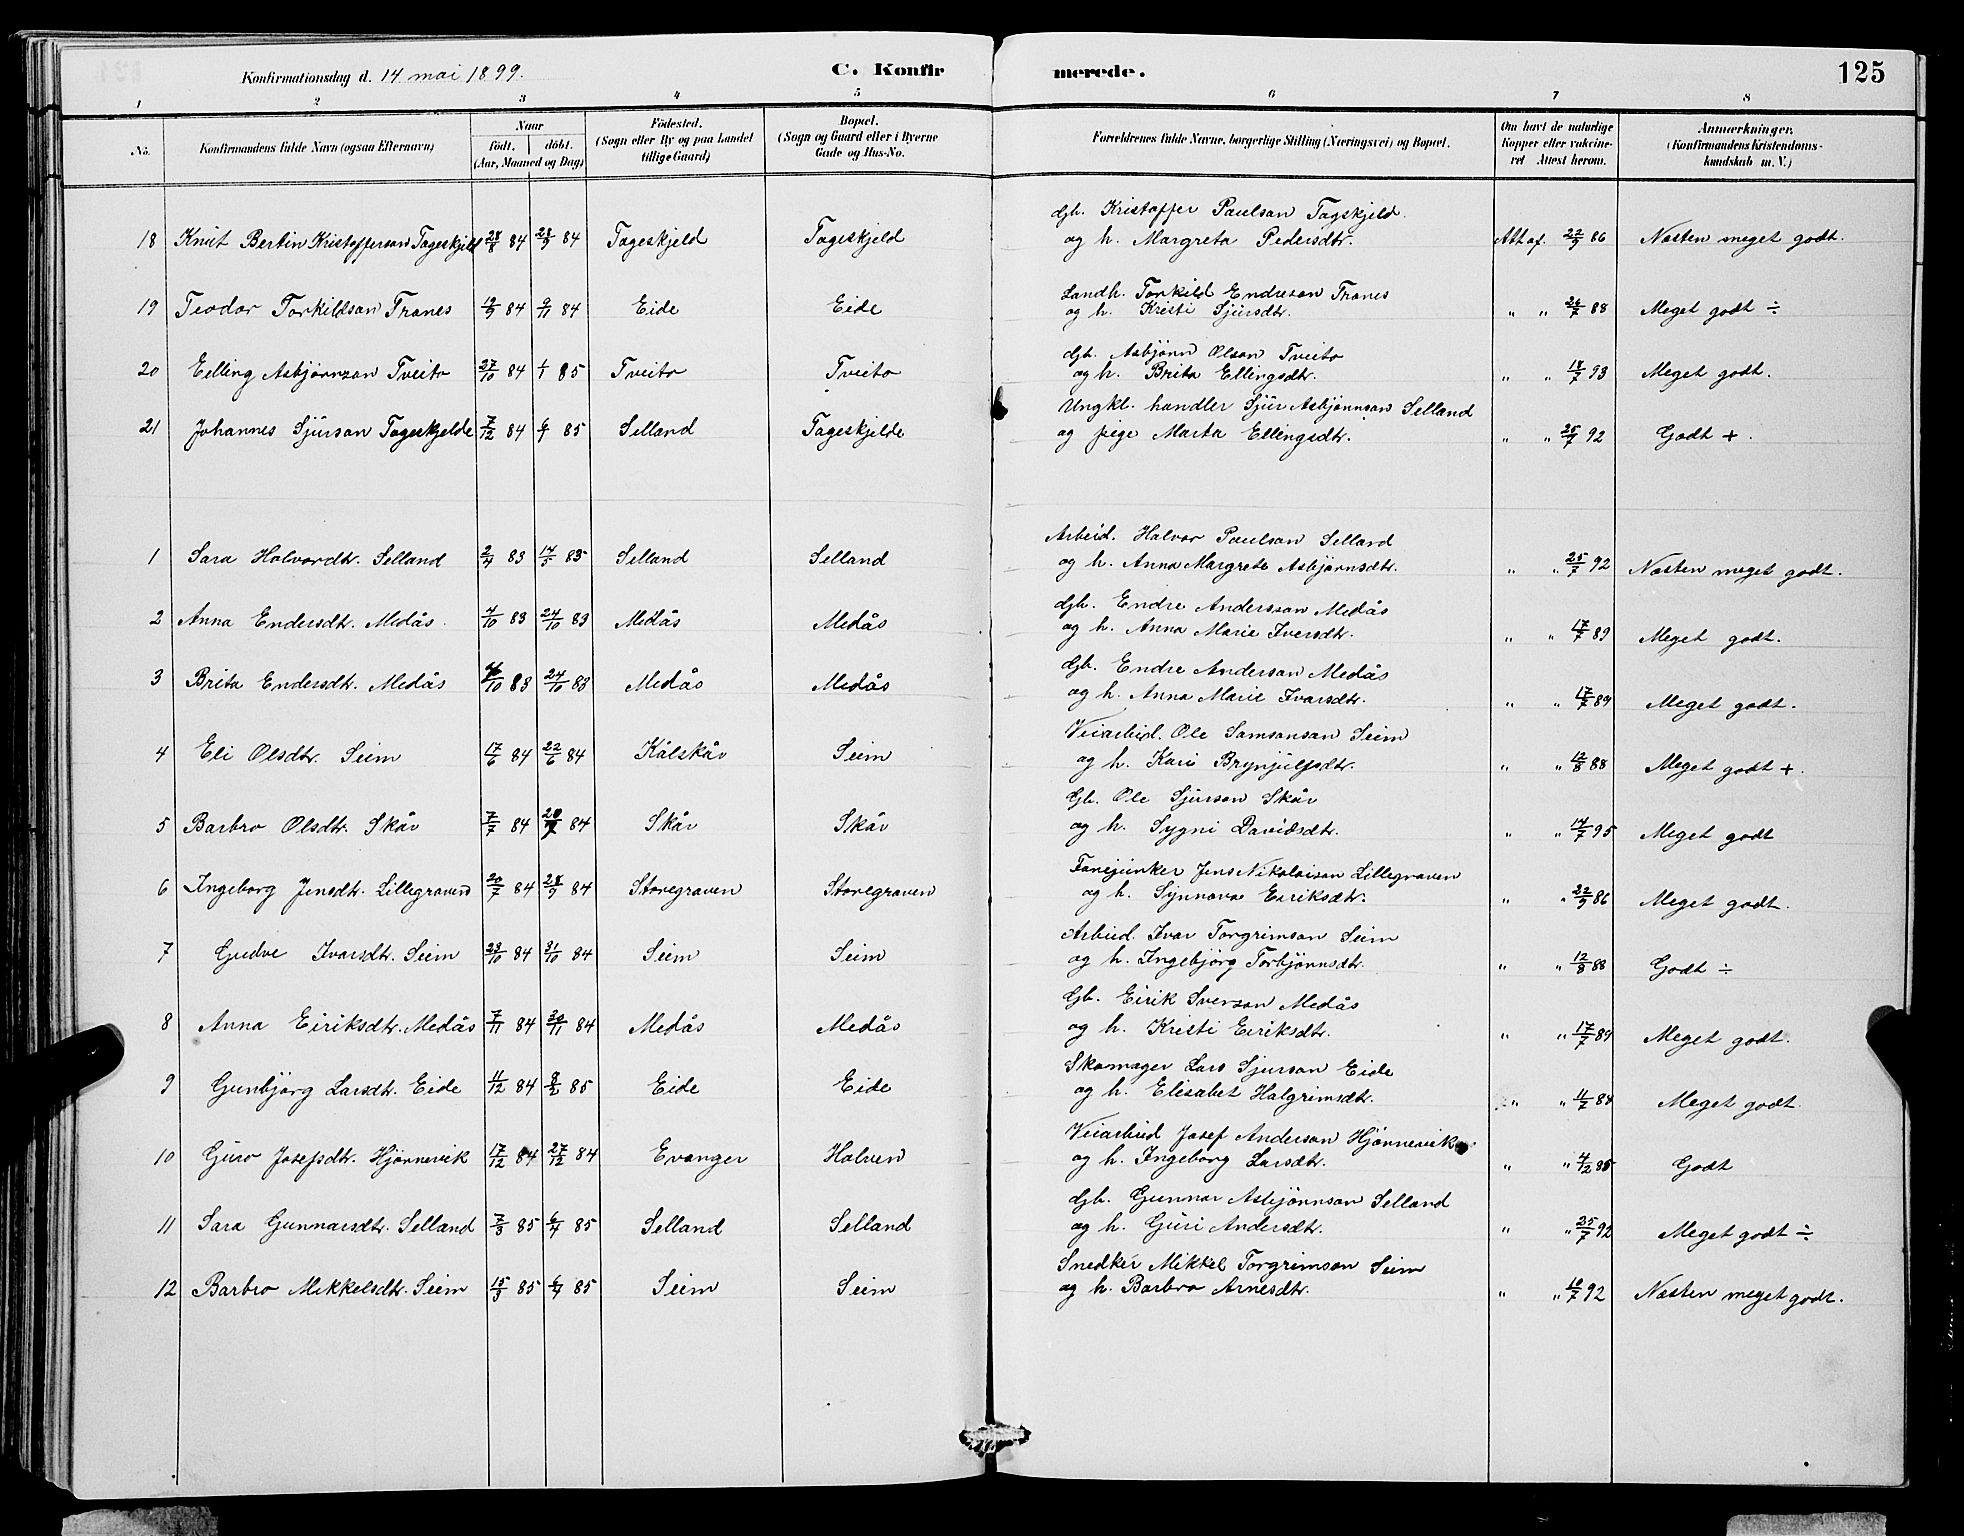 Konfirmationsdag d. 14 mai 1899.
C. Konfirmerede.
125
1 2 3 4 5 6 7 8
No.
Konfirmandens fulde Navn (ogsaa Efternavn)
Naar
födt. döbt.
(Aar, Maaned og Dag)
Födested.
(Sogn eller By og paa Landet
tillige Gaard)
Bopæl.
(Sogn og Gaard eller i Byerne
Gade og Hus-No.
Forældrenes fulde Navne, borgerlige Stilling (Næringsvei) og Bopæl.
Om havt de naturlige
Kopper eller vakcine-
ret Attest herom.
Anmærkninger.
(Konfirmandens Kristendoms-
kundskab m. V.)
Gb. Kristoffer Paulson Tagskjeld.
18 Knut Bertin Kristofferson Tageskjeld 28/8 84 28/9 84 Tageskjeld Tageskjeld og h. Margreta Pedersdtr. Att af. 22/9 86 Næsten meget godt.
Landh. Torkild Endreson Tranes
19 Teodor Torkildson Tranes 19/9 84 9/11 84 Eide Eide og h. Kristi Sjursdtr. " " 26/7 88 Meget godt ÷
Gb. Asbjönn Olson Tveito
20 Elling Asbjörnson Tveito 27/10 84 1/1 85 Tveito Tveito og h. Brita Ellingsdtr. " " 18/7 93 Meget godt.
Ungkl. handler Sjur Asbjönnson Selland
21 Johannes Sjurson Tageskjelde 7/12 84 6/1 85 Selland Tageskjelde og pige Marta Ellingsdtr. " " 25/7 92 Godt + .
Arbeid. Halvor Paulson Selland
1 Sara Halvordtr. Selland 2/4 83 14/5 83 Selland Selland og h. Anna Margrete Asbjörnsdtr. " " 25/7 92 Næsten meget godt.
Gb. Endre Andersson Medås
2 Anna Endersdtr. Medås. 4/10 83 24/10 83 Medås Medås og h. Anna Marie Iversdtr. " " 17/7 89 Meget godt.
Gb. Endre Anderson Medås
3 Brita Endersdtr. Medås 4/10 83 24/10 83 Medås Medås og h. Anna Marie Ivarsdtr. " " 17/7 89 Meget godt.
Veiarbeid. Ole Samsonson Seim
4 Eli Olsdtr. Seim 17/6 84 22/6 84 Kålskår Seim og h. Kari Brynjulfsdtr. " " 12/8 88 Meget godt + .
Gb. Ole Sjurson Skår
5 Barbro Olsdtr. Skår 7/7 84 20/7 84 Skår Skår og h. Sygni Davidsdtr. " " 14/7 95 Meget godt
Jens Nikolaison Lillegraven
6 Ingeborg Jensdtr. Lillegraven 20/7 84 28/9 84 Storegraven Storegraven og h. Synnøva Eiriksdtr. " " 22/9 86 Meget godt.
Arbeid. Ivar Torgrimson Seim
7 Gudve Ivarsdtr. Seim 23/10 84 31/10 84 Seim Seim og h. Ingebjörg Torbjönnsdtr. " " 12/8 88 Godt ÷
Gb. Eirik Iverson Medås
8 Anna Eiriksdtr. Medås 7/11 84 30/11 84 Medås Medås og h. Kristi Eiriksdtr. " " 17/7 89 Meget godt.
Skomager Lars Sjurson Eide
9 Gunbjörg Larsdtr. Eide 11/12 84 8/2 85 Eide Eide og h. Elisabet Halgrimsdtr. " " 11/7 84 Meget godt.
Veiarbeid Josef Anderson Hjönnevik
10 Guro Josefsdtr. Hjönnevik 17/12 84 27/12 84 Evanger Halven og h. Ingeborg Larsdtr. " " 4/2 85 Godt
Gb. Gunnar Asbjönnson Selland
11 Sara Gunnarsdtr. Selland 7/3 85 6/4 85 Selland Selland og h. Guri Andersdtr. " " 25/7 92 Meget godt ÷
Snedker Mikkel Torgrimson Seim
12 Barbro Mikkelsdtr. Seim 15/3 85 6/4 85 Seim Seim og h. Barbro Arnesdtr. " " 18/7 92 Næsten meget godt.